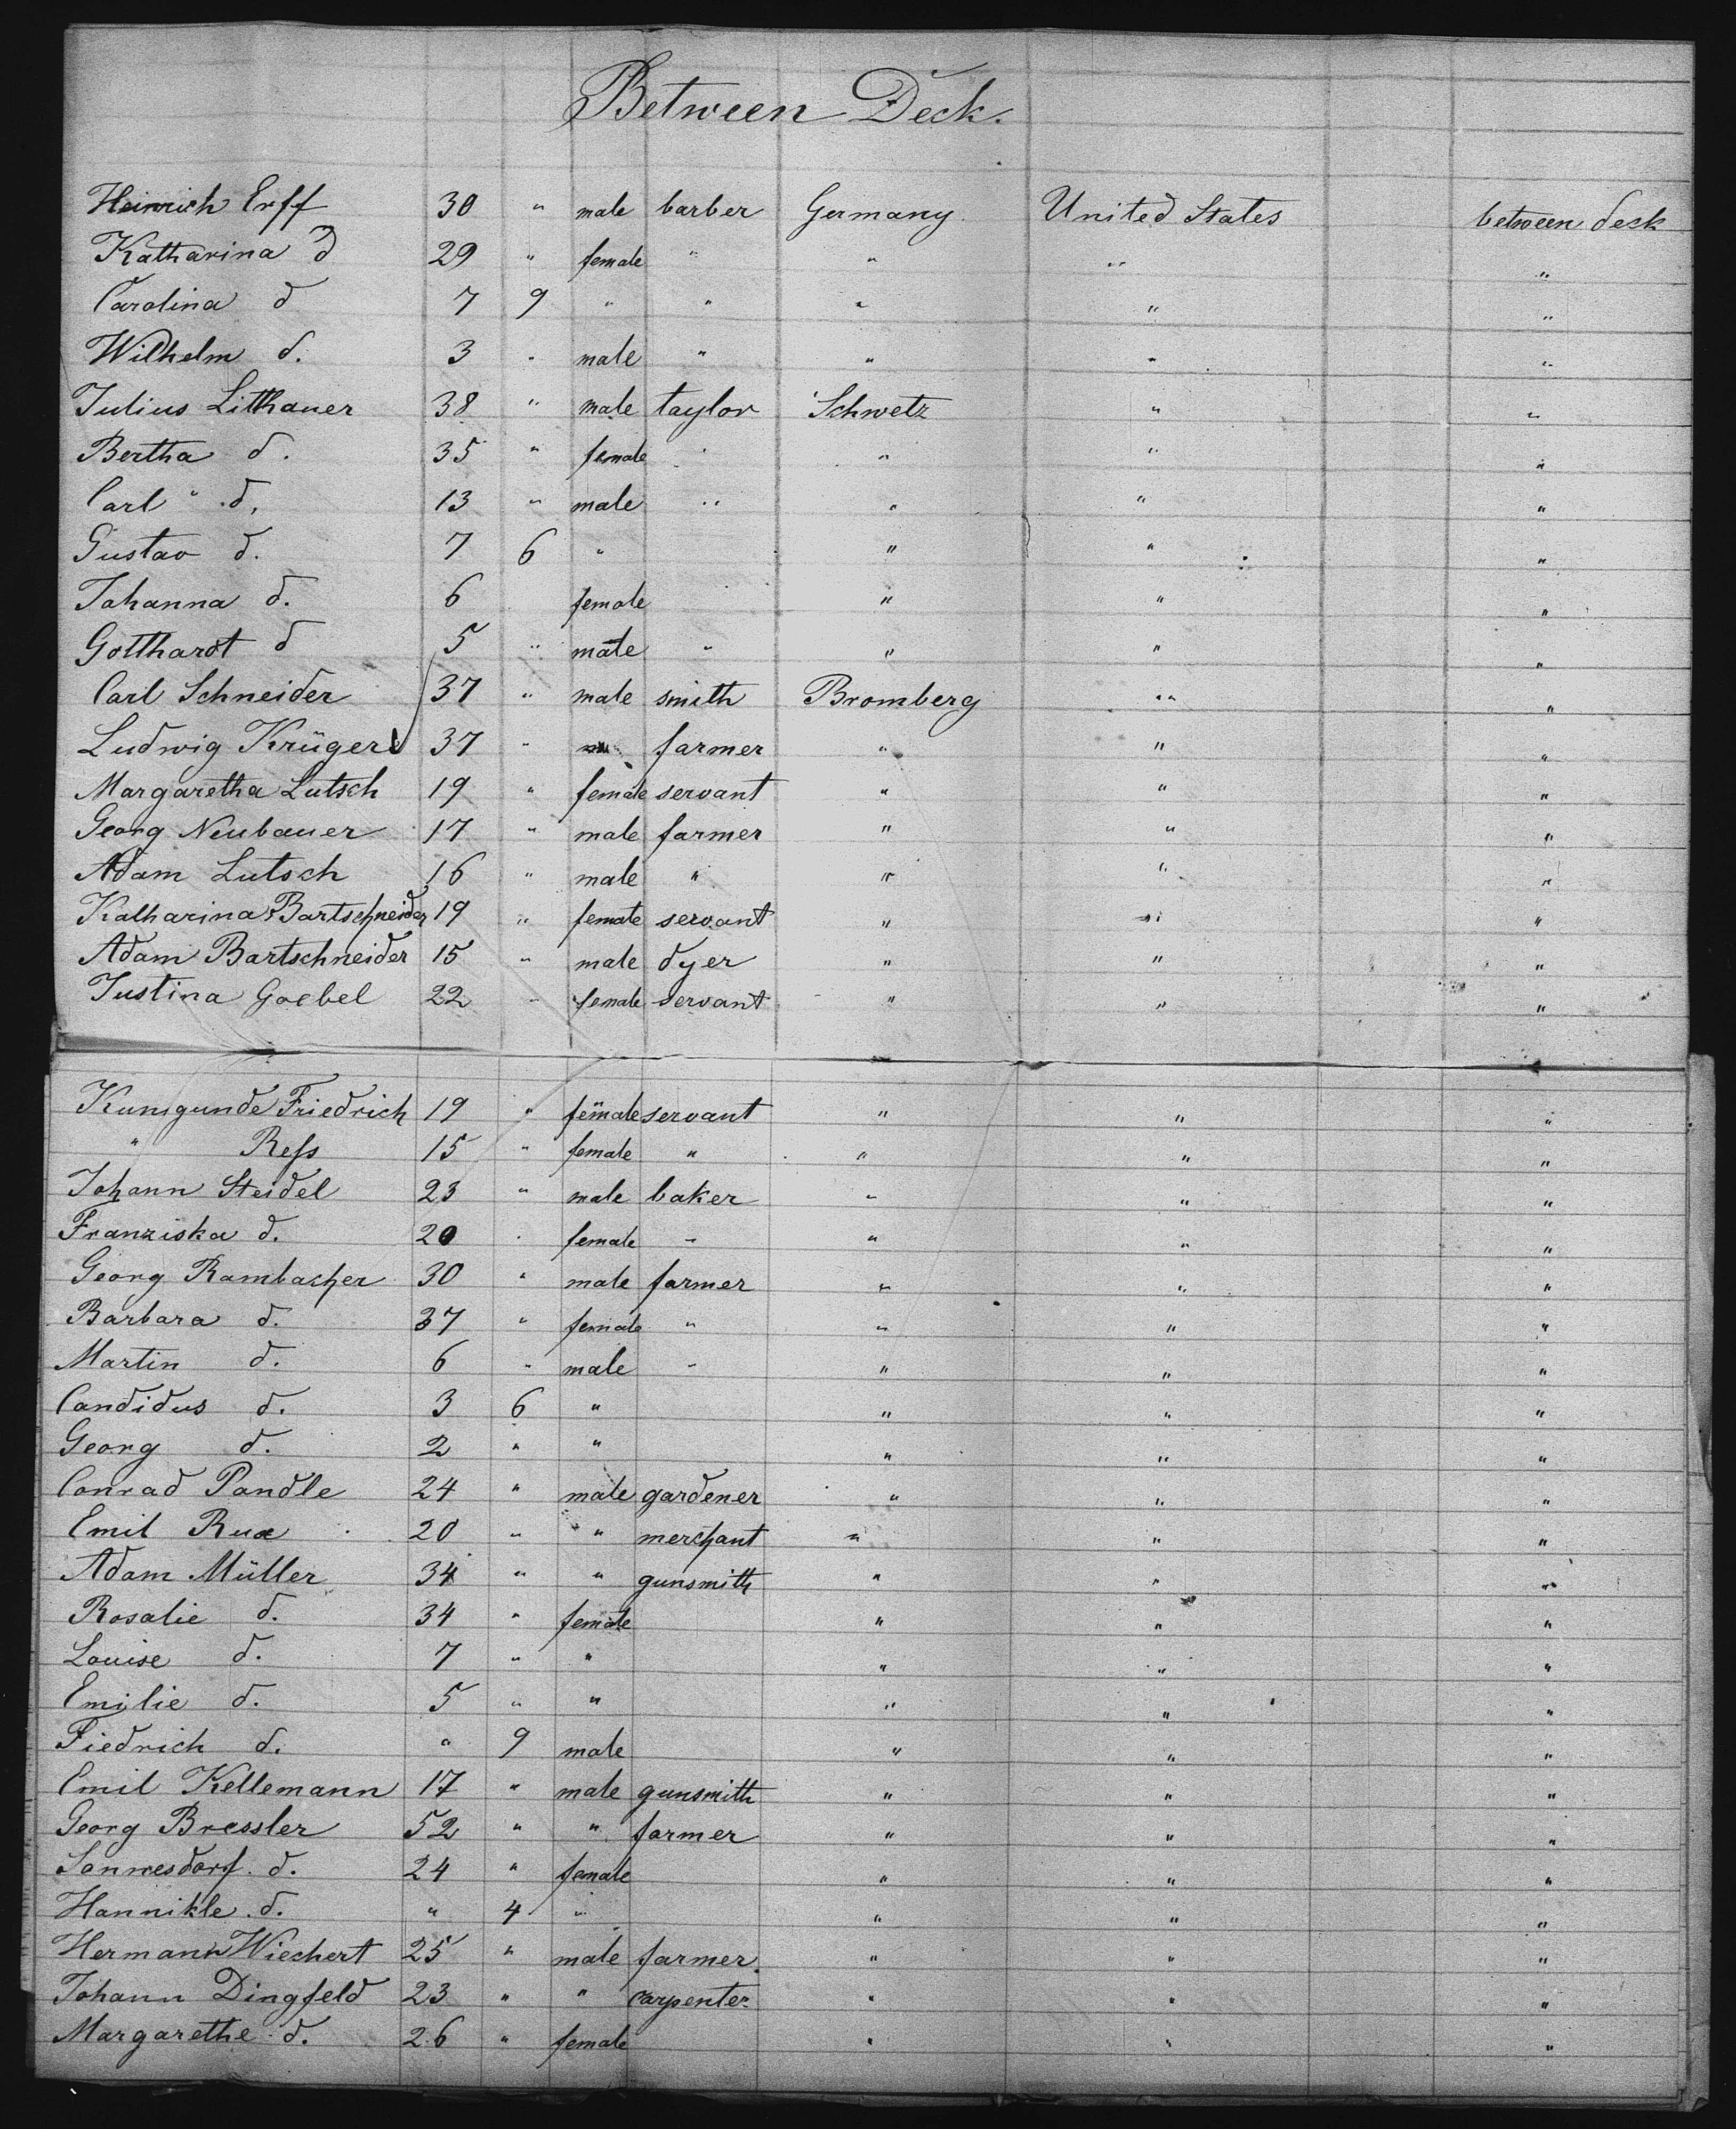 Between Deck.
Heinrich Erff 30 " male barber Germany United States between deck
Katharina d 29 " female " " " "
Carolina d 7 9 " " " " "
Wilhelm d. 3 " male " " " "
Julius Litthauer 38 " male taylor Schwetz " "
Bertha d. 35 " female " " " "
Carl " d. 13 " male " " " "
Gustav d. 7 6 " " " "
Johanna d. 6 female " " "
Gotthardt d 5 " male " " " "
Carl Schneider 37 " male smith Bromberg " "
Ludwig Krüger 37 " farmer " " "
Margaretha Lutsch 19 " female servant " " "
Georg Neubauer 17 " male farmer " " "
Adam Lutsch 16 " male " " " "
Katharina Bartschneider 19 " female servant " " "
Adam Bartschneider 15 " male dyer " " "
Justina Goebel 22 " female servant " " "
Kunigunde Friedrich 19 " female servant " " "
" Ress 15 " female " " " "
Johann Steidel 23 " male baker " " "
Franziska d. 20 " female " " " "
Georg Rambacher 30 " male farmer " " "
Barbara d. 37 " female " " " "
Martin d. 6 " male " " " "
Candidus d. 3 6 " " " "
Georg d. 2 " " " " "
Conrad Pandle 24 " male gardener " " "
Emil Rux 20 " " merchant " " "
Adam Müller 34 " " gunsmith " " "
Rosalie d. 34 " female " " "
Louise d. 7 " " " " "
Emilie d. 5 " " " " "
Fiedrich d. " 9 male " " "
Emil Kellemann 17 " male gunsmith " " "
Georg Bressler 52 " " farmer " " "
d. 24 " female " " "
Hannikle d. " 4 " " " "
Hermann Wiechert 25 " male farmer. " " "
Johann Dingfeld 23 " " carpenter " " "
Margarethe d. 26 " female " " "